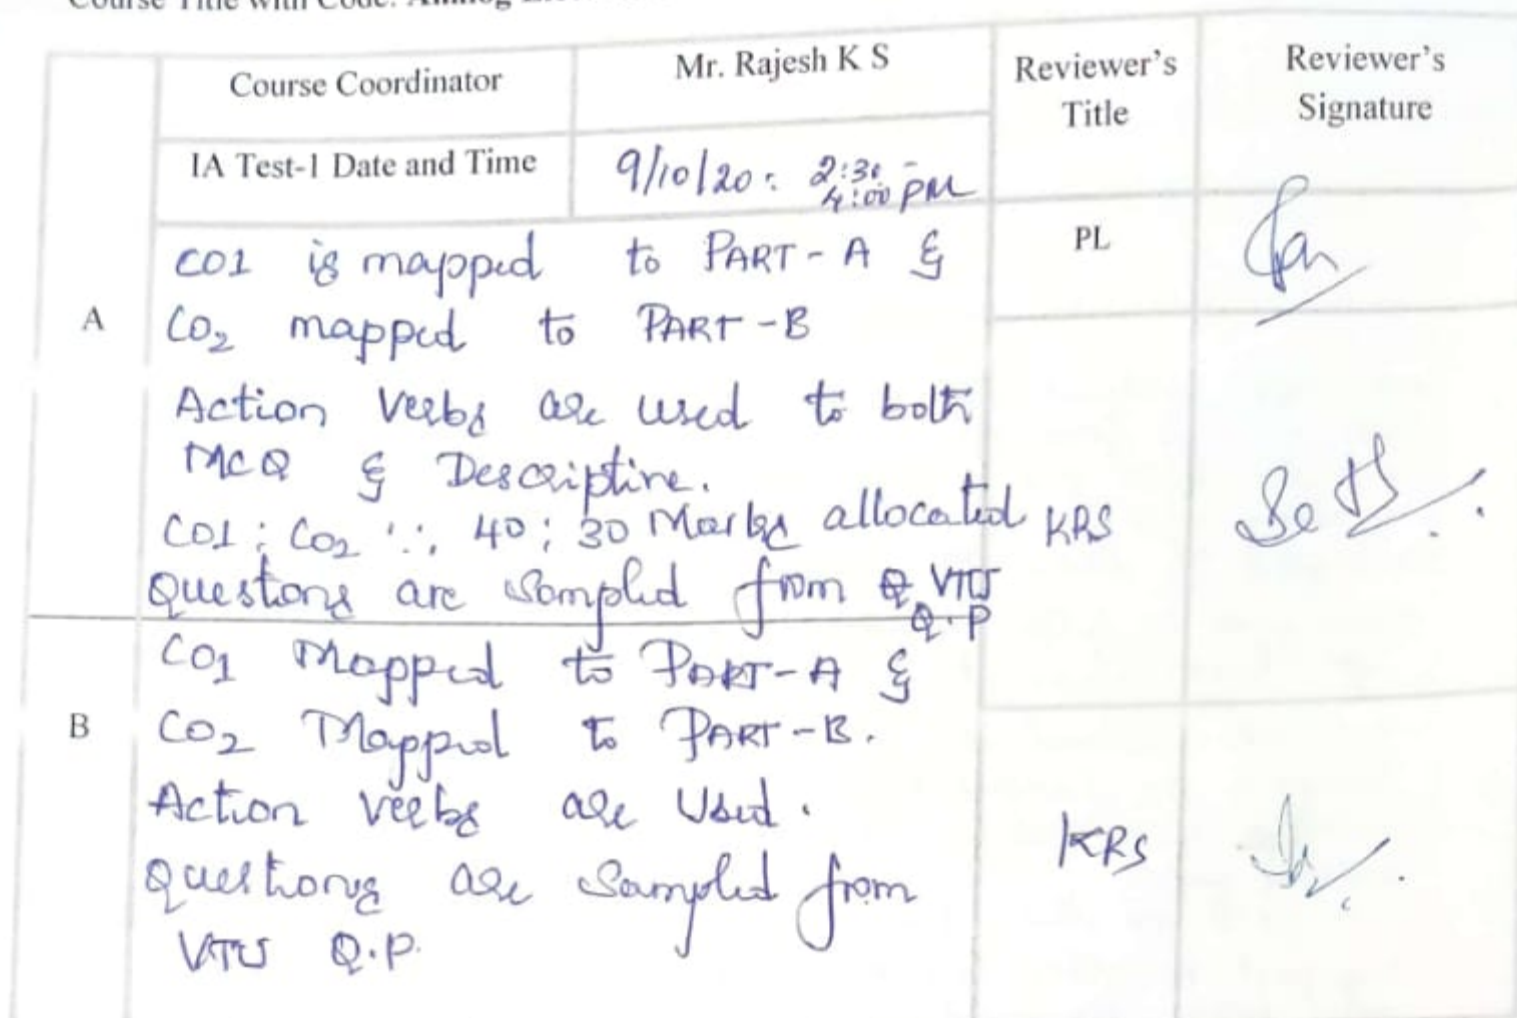 Course Title with Code: Analog
Course Coordinator
Mr. Rajesh K S
Reviewer's
Title
Reviewer's
Signature
IA Test-1 Date and Time
9/10/20: 2:30 -
4:00 PM
A
CO1 is mapped to PART-A &
CO2 mapped to PART-B
Action Verbs are used to both
MCQ & Descriptive.
CO1 : CO2 :: 40 : 30 Marks allocated
Questions are sampled from VTU
Q.P
PL
KRS
B
CO1 Mapped to PART-A &
CO2 Mapped to PART-B.
Action verbs are Used.
Questions are Sampled from
VTU Q.P.
KRS